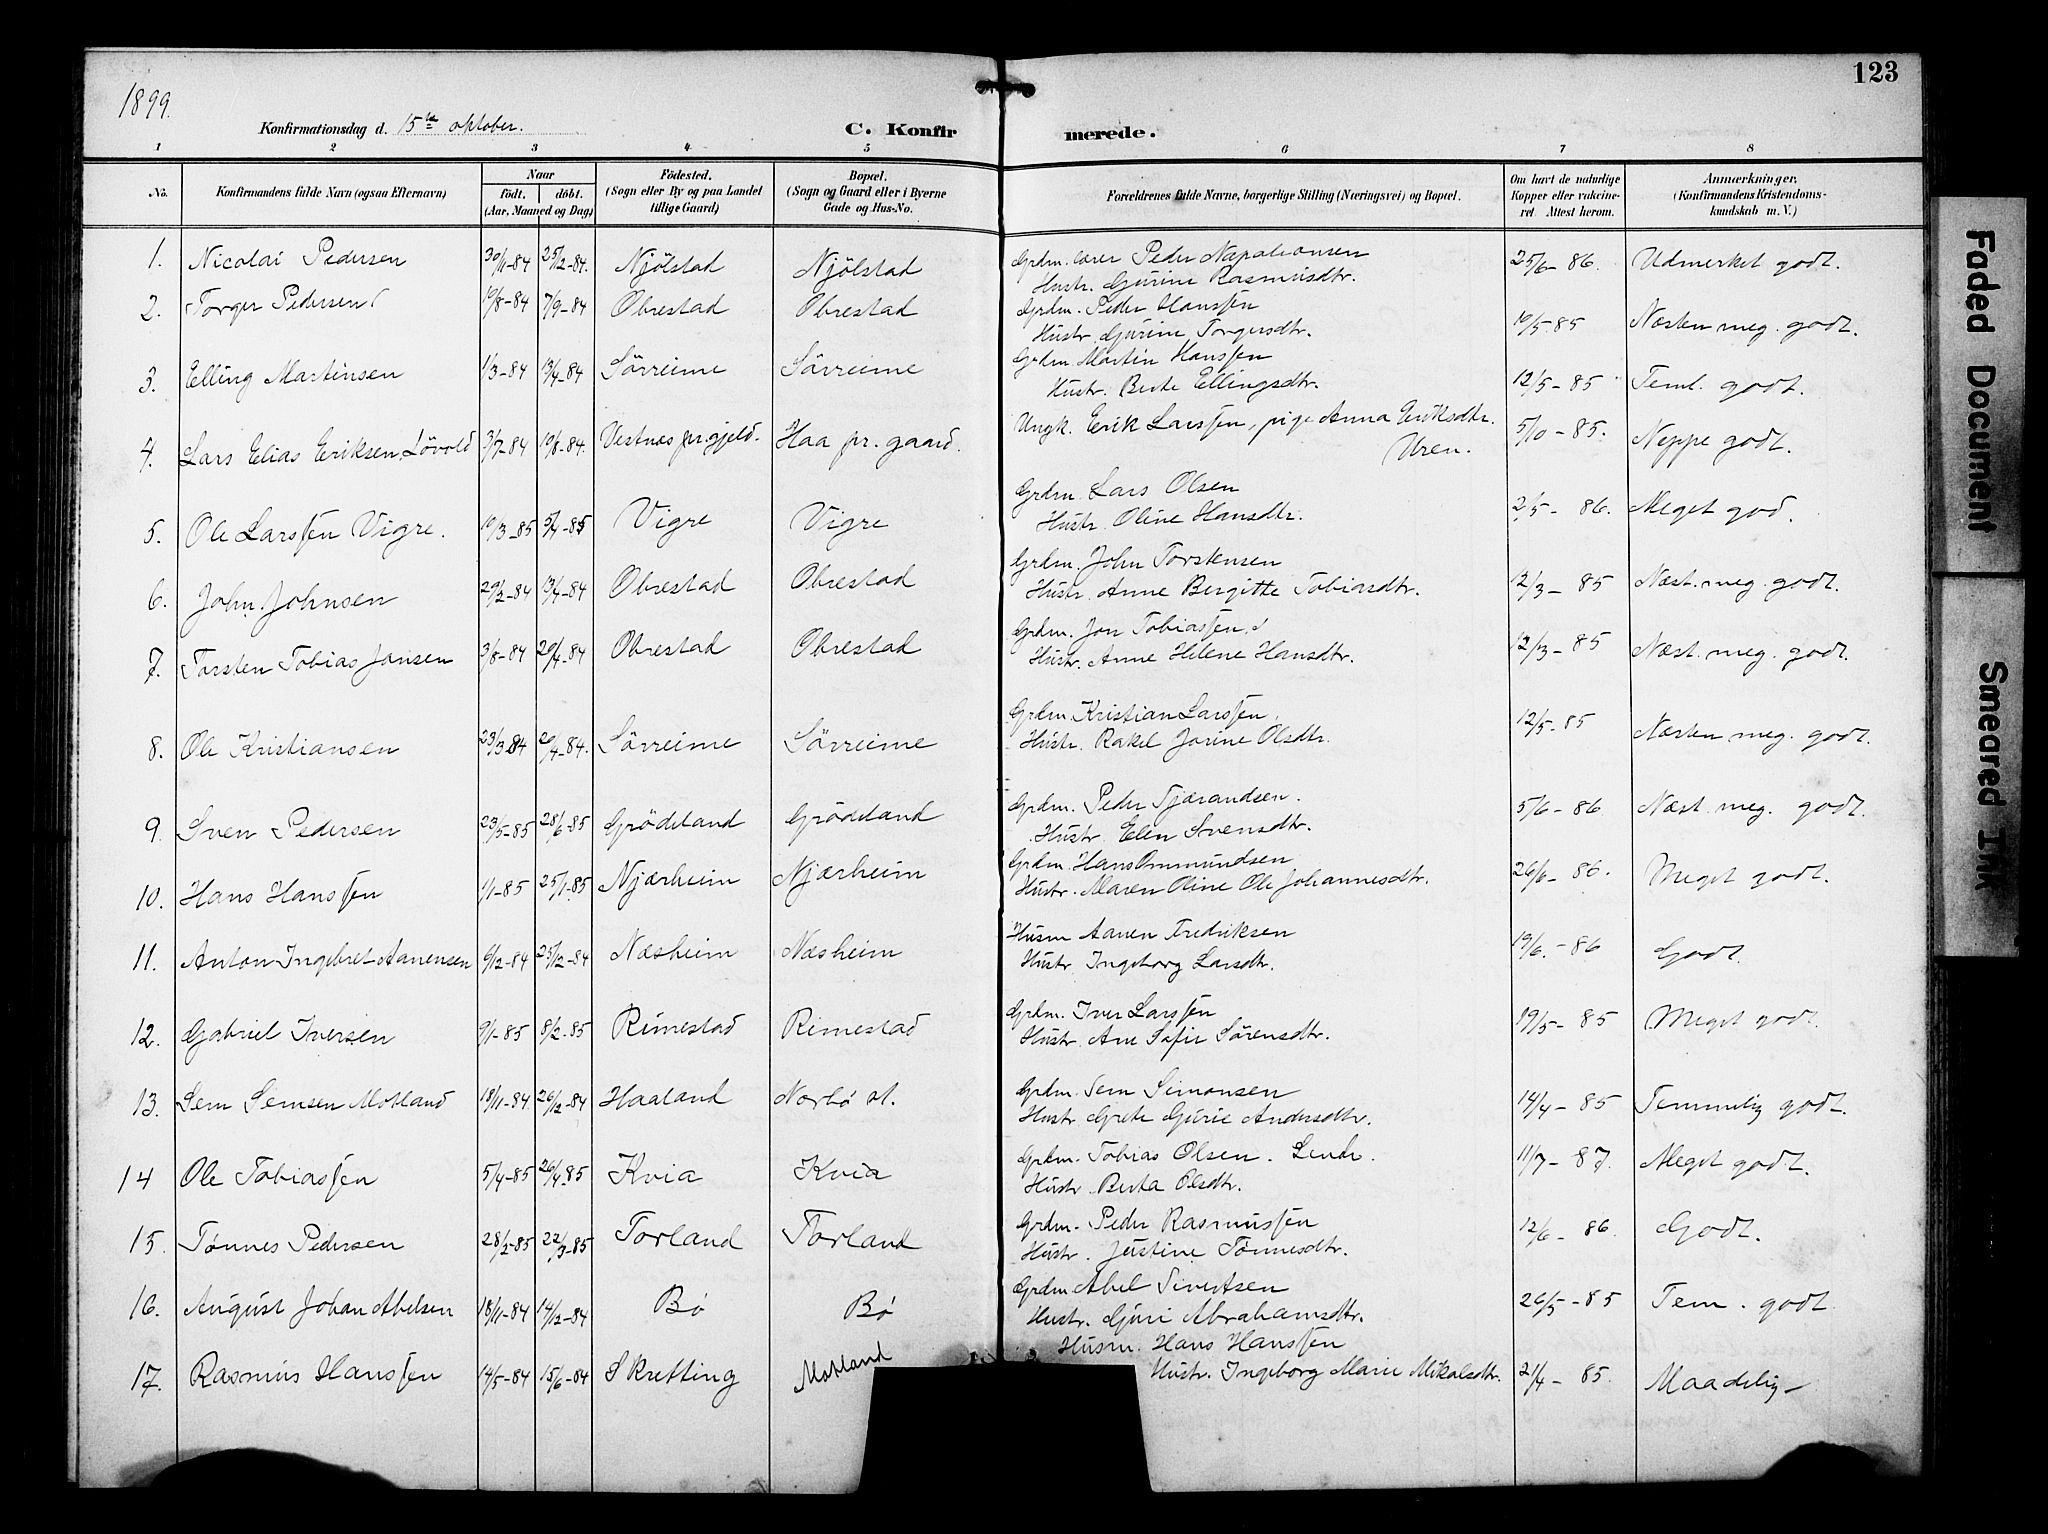 123
1899.
Konfirmationsdag d. 15de oktober. C. Konfir merede.
1 2 3 4 5 6 7 8
No. Konfirmandens fulde Navn (ogsaa Efternavn) Naar født. døbt. (Aar, Maaned og Dag) Födested. (Sogn eller By og paa Landet tillige Gaard) Bopæl. (Sogn og Gaard eller i Byerne Gade og Hus-No. Forældrenes fulde Navne, borgerlige Stilling (Næringsvei) og Bopæl. Om havt de naturlige Kopper eller vakcineret. Attest herom. Anmærkninger. (Konfirmandens Kristendomskundskab m. V.)
1. Nicolai Pedersen 30/11-84 25/12-84. Njölstad Njölstad Grdm. Peder Napoleonsen 25/6-86. Udmerket godt.
Hustr. Gurine Rasmusdtr.
2. Torger Pedersen 19/8-84 7/9-84 Obrestad Obrestad Grdm. Peder Hanssen 19/5-85 Næsten meg. godt.
Hustr. Gurine Torgersdtr.
3. Elling Martinsen 1/3-84 13/4-84 Sörreime Sörreime Grdm. Martin Hanssen 12/5-85 Teml. godt.
Hustr. Berte Ellingsdtr.
4. Lars Elias Eriksen Lövold 3/7-84 10/8-84. Vestnes pr.gjeld. Haa pr. gaard. Ungk. Erik Larssen, pige Anna Eriksdtr. Uren. 5/10-85. Neppe godt.
5. Ole Larssen Vigre. 10/3-85 5/4-85 Vigre Vigre Grdm. Lars Olsen 2/5-86. Meget god.
Hustr. Oline Hansdtr.
6. John Johnsen 29/2-84 13/4-84 Obrestad Obrestad Grdm. John Torstensen 12/3-85 Næst. meg. godt.
Hustr. Anne Birgitte Tobiasdtr.
7. Torsten Tobias Jonsen 3/8-84 20/4-84 Obrestad Obrestad Grdm. Jon Tobiassen 12/3-85 Næst. meg. godt.
Hustr. Anne Helene Hansdtr.
8. Ole Kristiansen 23/3-84 20/4-84. Sörreime Sörreime Grdm. Kristian Larssen. 12/5-85 Næsten meg. godt.
Hustr. Rakel Jorine Olsdtr.
9. Sven Pedersen 23/5-85 28/6-85 Grödeland Grödeland Grdm. Peder Tjærandsen. 5/6-86 Næst. meg. godt.
Hustr. Elen Svensdtr.
10. Hans Hanssen 1/1-85 25/1-85 Njærheim Njærheim Grdm. Hans Ommundsen 26/6-86. Meget godt.
Hustr. Maren Oline Ole Johannesdtr.
11. Anton Ingebret Aanensen 9/12-84 25/12-84 Næsheim Næsheim Husm Aanen Fredriksen 19/6-86 Godt.
Hustr Ingeborg Larsdtr.
12. Gabriel Iversen 9/1-85 8/2-85 Rimestad Rimestad Grdm. Iver Larssen 19/5-85 Meget godt.
Hustr. Ane Sofie Sörensdtr.
13. Sem Semsen Motland 18/11-84. 26/12-84 Haaland Nærbö st. Grdm. Sem Simonsen 14/4-85 Temmelig godt.
Hustr Grete Gurie Andersdtr.
14 Ole Tobiassen 5/4-85 26/4-85 Kvia Kvia Grdm. Tobias Olsen. 11/7-87. Meget godt.
Hustr. Berta Olsdtr.
15. Tønnes Pedersen 28/2-85 22/3-85 Torland Torland Grdm. Peder Rasmussen 12/6-86. Godt.
Hustr. Justine Tönnesdtr.
16. August Johan Abelsen 18/11-84 14/12-84 Bø Bø Grdm Abel Sivertsen 26/5-85 Tem. godt
Hustr. Guri Abrahamsdtr.
17. Rasmus Hanssen 14/5-84 15/6-84 Skretting Motland Husm. Hans Hanssen 21/4-85. Maadelig
Hustr. Ingeborg Marie Mikalsdtr.
Faded Document
Smeared Ink